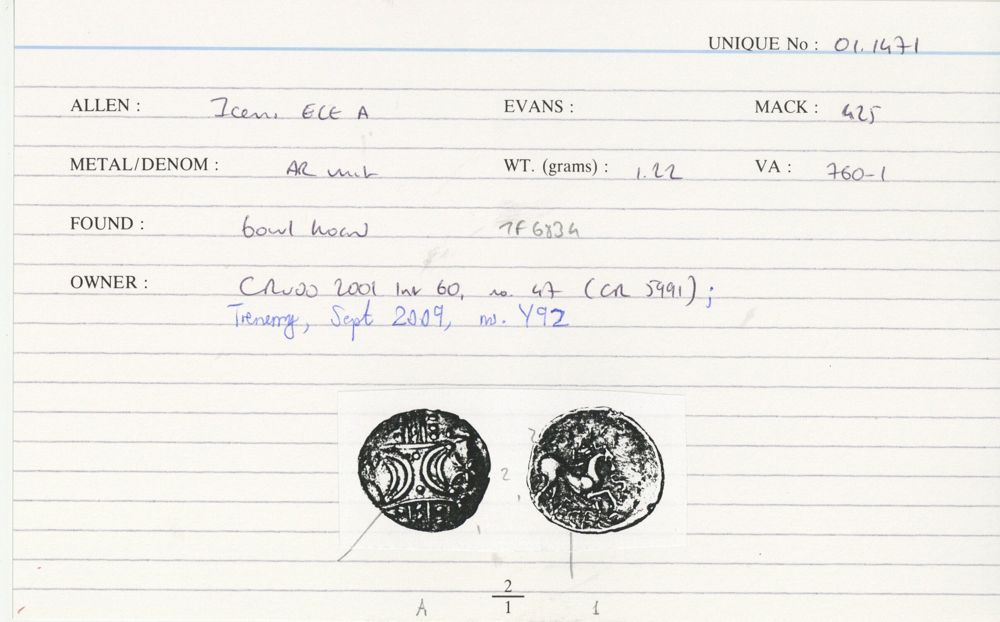 UNIQUE No : 01.1471
ALLEN : Iceni ECE A EVANS : MACK : 425
METAL/DENOM : AR unit WT. (grams) : 1.22 VA : 760-1
FOUND : bowl hoard TF6834
OWNER : CRuoo 2001 list 60, no. 47 (CR 5991) ;
Trenerry, Sept 2009, no. Y92
2
1
2
A 1
1